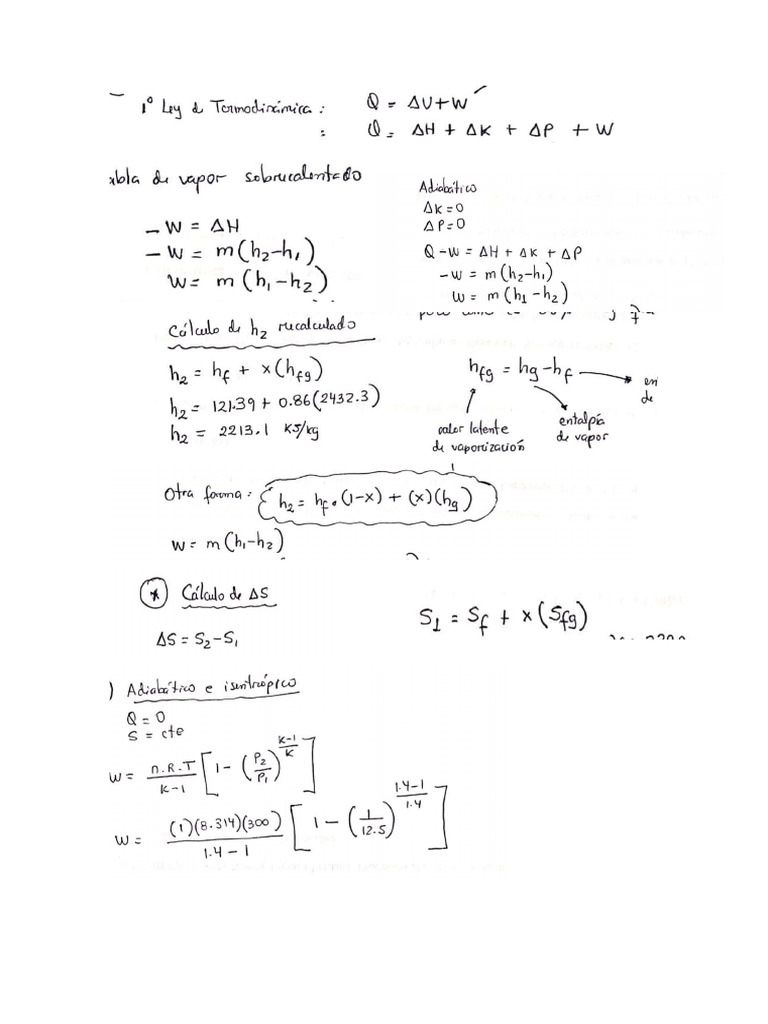 1° Ley d Termodinámica : Q = ΔU+W
: Q = ΔH + ΔK + ΔP + W
xbla de vapor sobrecalentado
- W = ΔH
- W = m(h2-h1)
W = m(h1-h2)
Adiabático
ΔK=0
ΔP=0
Q-W = ΔH + ΔK + ΔP
-W = m(h2-h1)
W = m(h1-h2)
Cálculo de h2 recalculado
h2 = hf + x(hfg)
h2 = 121.39 + 0.86(2432.3)
h2 = 2213.1 KJ/kg
hfg = hg-hf
en
de
calor latente
de vaporización
entalpía
de vapor
Otra forma: h2 = hf•(1-x) + (x)(hg)
W = m(h1-h2)
* Cálculo de ΔS
ΔS = S2-S1
S1 = Sf + x(Sfg)
) Adiabático e isentrópico
Q = 0
S = cte
W = n.R.T/K-1 [1-(P2/P1)^K-1/K]
W = (1)(8.314)(300)/1.4-1 [1-(1/12.5)^1.4-1/1.4]